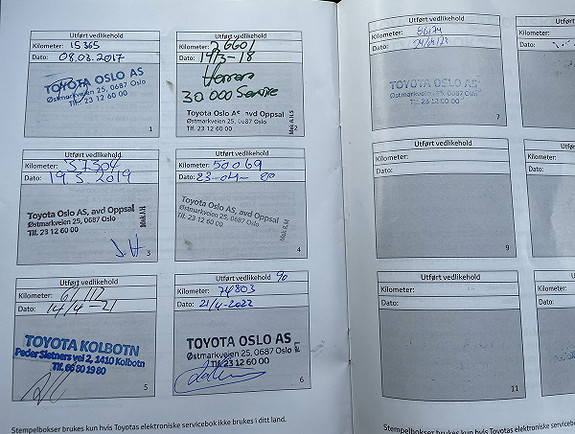 Utført vedlikehold
Kilometer: 15365
Dato: 08.03.2017
TOYOTA OSLO AS
Østmarkveien 25, 0687 Oslo
Tlf. 23 12 60 00
1
Utført vedlikehold
Kilometer: 26601
Dato: 14/3-18
30 000 Service
Toyota Oslo AS, avd Oppsal
Østmarkveien 25, 0687 Oslo
Tlf. 23 12 60 00
2
Utført vedlikehold
Kilometer: 37304
Dato: 19.3.2019
Toyota Oslo AS, avd Oppsal
Østmarkveien 25, 0687 Oslo
Tlf. 23 12 60 00
J.H
3
Utført vedlikehold
Kilometer: 50069
Dato: 23-04-20
Toyota Oslo AS, avd Oppsal
Østmarkveien 25, 0687 Oslo
Tlf. 23 12 60 00
4
Utført vedlikehold
Kilometer: 61112
Dato: 14/4-21
TOYOTA KOLBOTN
Peder Sletners vei 2, 1410 Kolbotn
Tlf. 66 80 19 80
5
Utført vedlikehold 90
Kilometer: 74803
Dato: 21/4-2022
TOYOTA OSLO AS
Østmarkveien 25, 0687 Oslo
Tlf. 23 12 60 00
6
Stempelbokser brukes kun hvis Toyotas elektroniske servicebok ikke brukes i ditt land.
Utført vedlikehold
Kilometer: 86174
Dato:
TOYOTA OSLO AS
Østmarkveien 25, 0687 Oslo
Tlf. 23 12 60 00
7
Utført vedlikehold
Kilometer:
Dato:
9
Utført vedlikehold
Kilometer:
Dato:
11
Stempelbokser brukes kun hvis Toyotas elektroniske servicebok